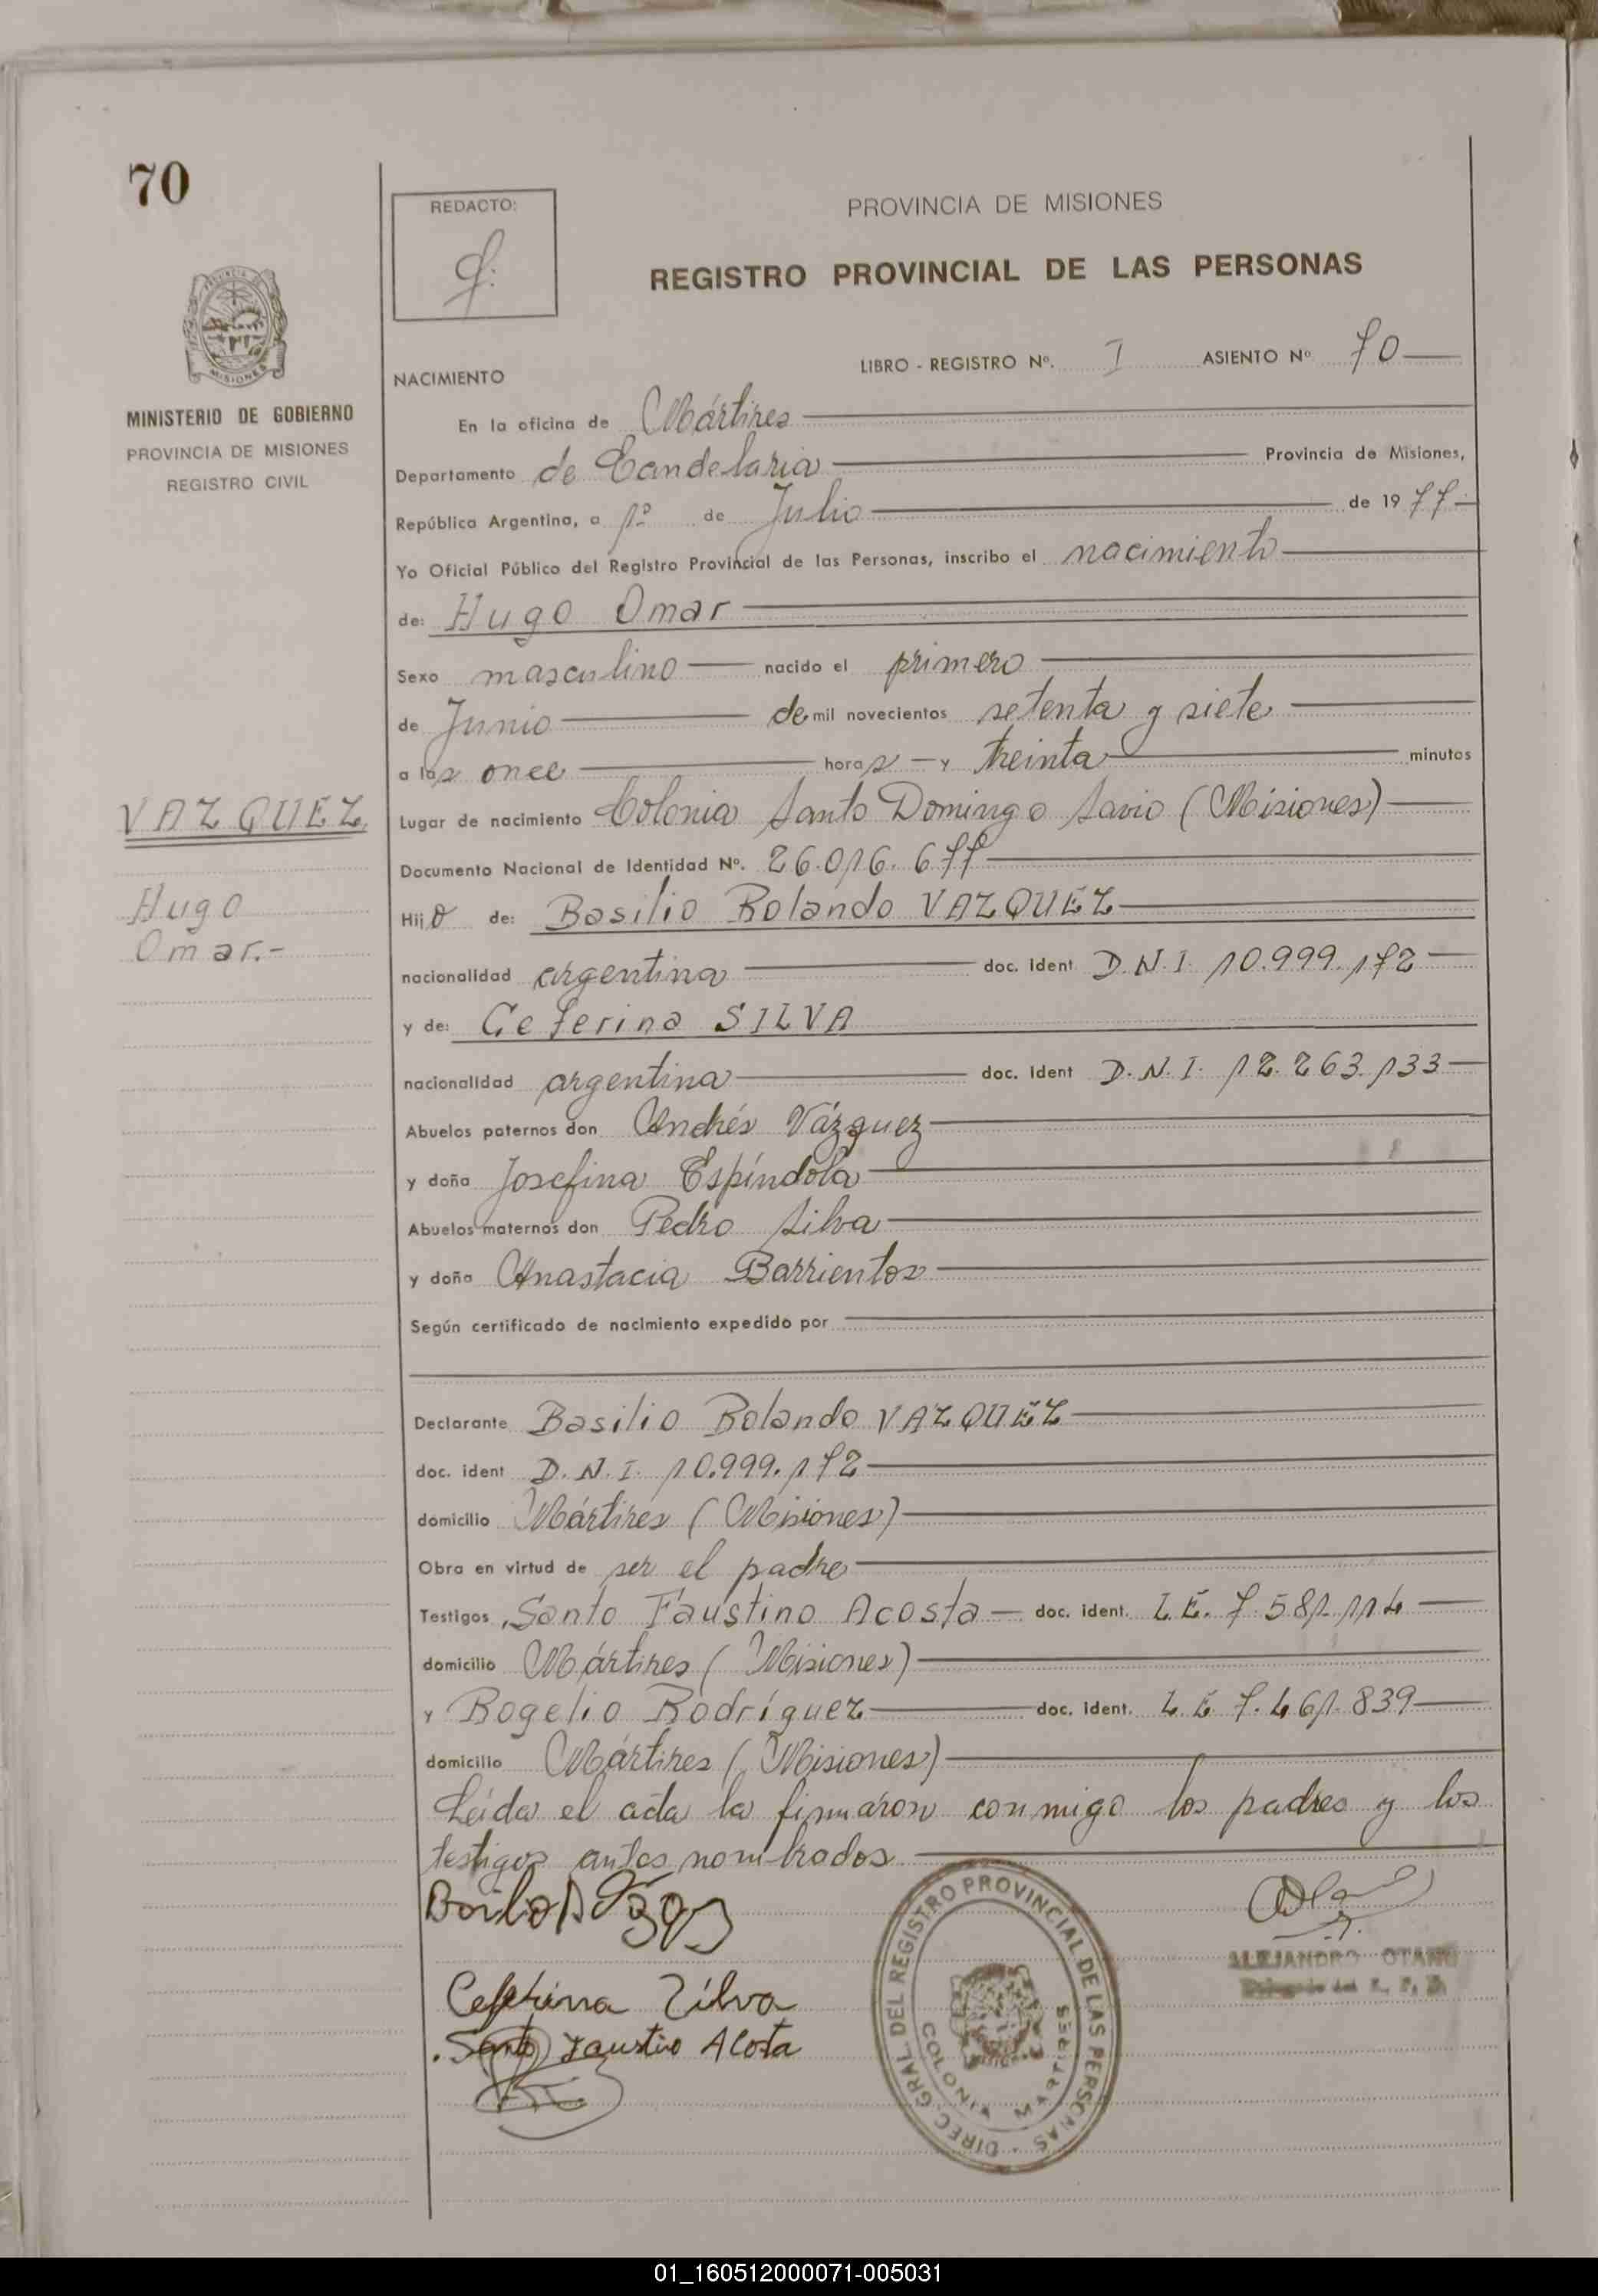 70
REDACTO:
PROVINCIA DE MISIONES
REGISTRO PROVINCIAL DE LAS PERSONAS
MISIONES
MINISTERIO DE GOBIERNO
PROVINCIA DE MISIONES
REGISTRO CIVIL
LIBRO - REGISTRO Nº. I ASIENTO Nº 70
NACIMIENTO
En la oficina de Mártires
Departamento de Candelaria Provincia de Misiones,
República Argentina, a 1º de Julio de 1977.
Yo Oficial Público del Registro Provincial de las Personas, inscribo el nacimiento
de: Hugo Omar
Sexo masculino nacido el primero
de Junio de mil novecientos setenta y siete
a las once horas y treinta minutos
VAZQUEZ
Lugar de nacimiento Colonia Santo Domingo Savio (Misiones)
Documento Nacional de Identidad Nº. 26.016.677
Hugo
Omar.-
Hijo de: Basilio Rolando VAZQUEZ
nacionalidad argentina doc. ident D.N.I. 10.999.172
y de: Ceferina SILVA
nacionalidad argentina doc. ident D.N.I. 12.263.133
Abuelos paternos don Andrés Vázquez
y doña Josefina Espíndola
Abuelos maternos don Pedro Silva
y doña Anastacia Barrientos
Según certificado de nacimiento expedido por
Declarante Basilio Rolando VAZQUEZ
doc. ident D.N.I. 10.999.172
domicilio Mártires (Misiones)
Obra en virtud de ser el padre
Testigos, Santo Faustino Acosta doc. ident. L.E. 7.581.114
domicilio Mártires (Misiones)
y Rogelio Rodríguez doc. ident. L.E. 7.461.839
domicilio Mártires (Misiones)
Leída el acta la firmaron conmigo los padres y los
testigos antes nombrados
Ceferina Zilva
Santo Faustino Acosta
DIREC. GRAL. DEL REGISTRO PROVINCIAL DE LAS PERSONAS
COLONIA MARTIRES
ALEJANDRO
01_160512000071-005031